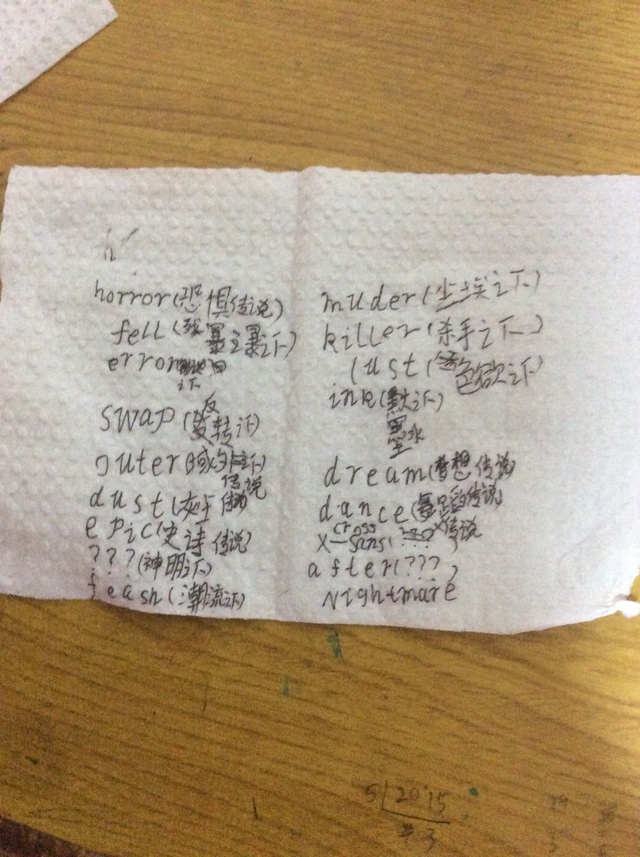 horror(恐惧传说)
fell(暴之下)
error
之下
swap(反转之下)
outer(域外之下)
传说
dust(灰尘传说)
epic(史诗传说)
???(神明之下)
feash(潮流之下)
muder(尘埃之下)
killer(杀手之下)
lust(色欲之下)
ink(之下)
墨水
dream(梦想传说)
dance(舞蹈传说)
cross
X-sans(传说
after(???)
Nightmare
5 20.15
#3